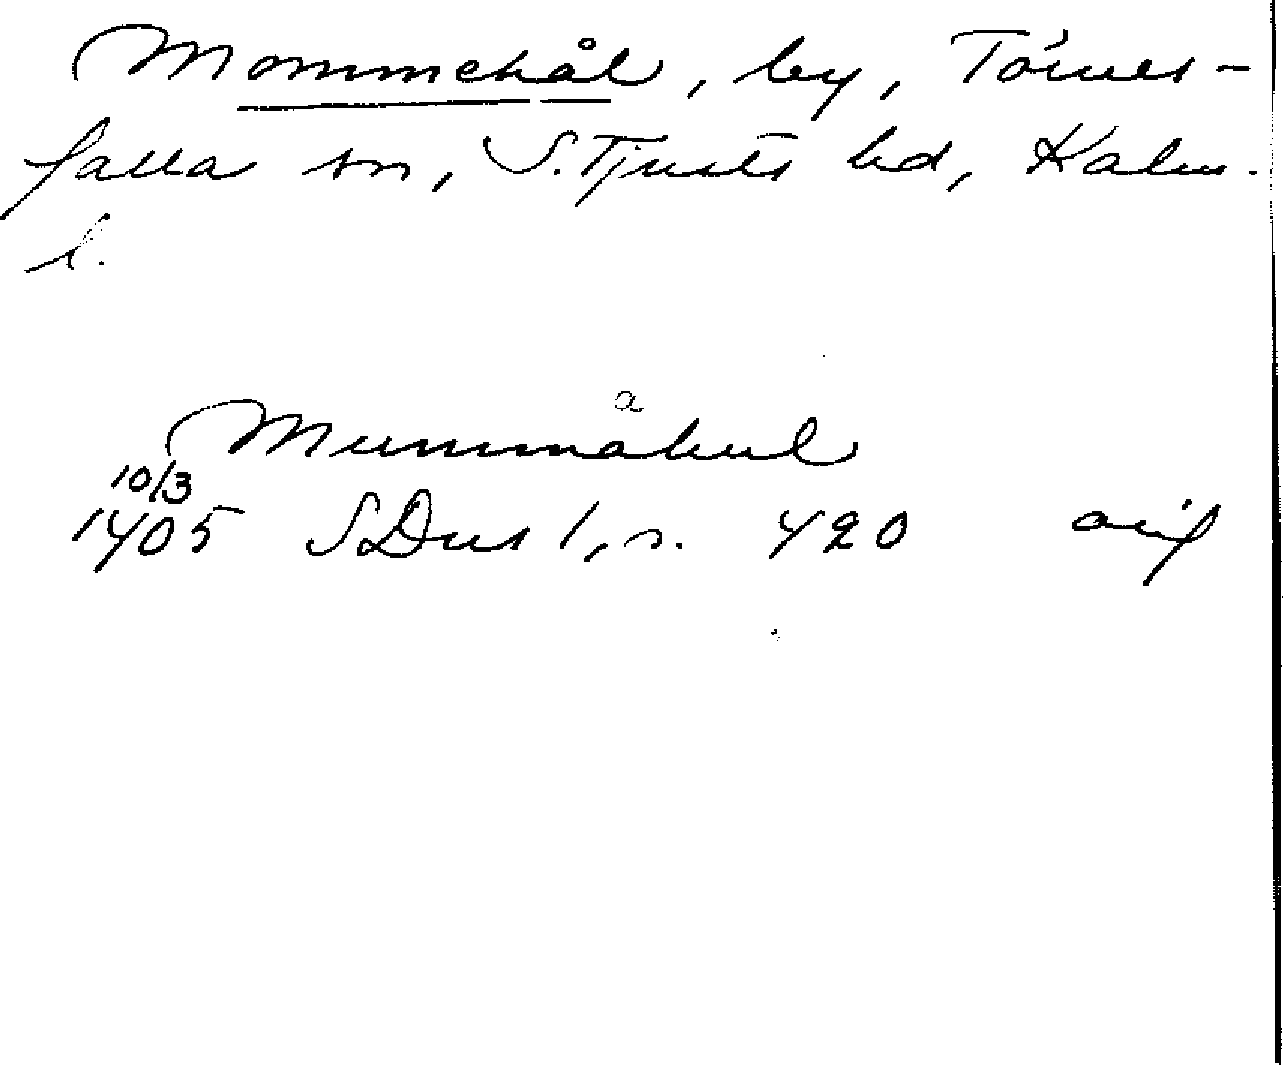 Mommehål, by, Törnes-
falla sn, S. Tjusts hd, Kalm.
l.
a
Mummåhul
10/3
1405 SDns 1, s. 420 avif